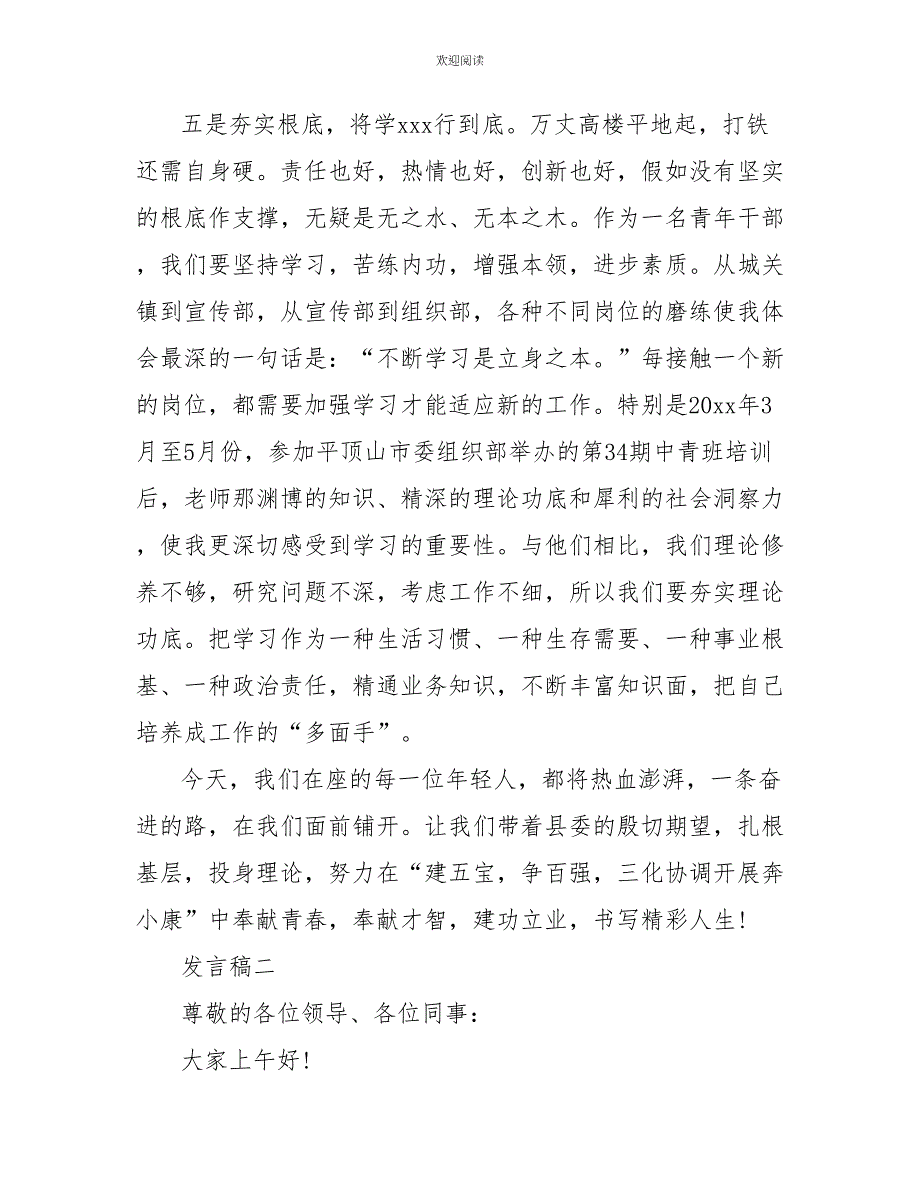 欢迎阅读
五是夯实根底，将学xxx行到底。万丈高楼平地起，打铁
还需自身硬。责任也好，热情也好，创新也好，假如没有坚实
的根底作支撑，无疑是无之水、无本之木。作为一名青年干部
，我们要坚持学习，苦练内功，增强本领，进步素质。从城关
镇到宣传部，从宣传部到组织部，各种不同岗位的磨练使我体
会最深的一句话是：“不断学习是立身之本。”每接触一个新
的岗位，都需要加强学习才能适应新的工作。特别是20xx年3
月至5月份，参加平顶山市委组织部举办的第34期中青班培训
后，老师那渊博的知识、精深的理论功底和犀利的社会洞察力
，使我更深切感受到学习的重要性。与他们相比，我们理论修
养不够，研究问题不深，考虑工作不细，所以我们要夯实理论
功底。把学习作为一种生活习惯、一种生存需要、一种事业根
基、一种政治责任，精通业务知识，不断丰富知识面，把自己
培养成工作的“多面手”。
今天，我们在座的每一位年轻人，都将热血澎湃，一条奋
进的路，在我们面前铺开。让我们带着县委的殷切期望，扎根
基层，投身理论，努力在“建五宝，争百强，三化协调开展奔
小康”中奉献青春，奉献才智，建功立业，书写精彩人生!
发言稿二
尊敬的各位领导、各位同事：
大家上午好!